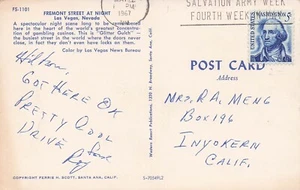 FS-1181
FREMONT STREET AT NIGHT
Las Vegas, Nevada
A spectacular night scene long to be remembered
here in the heart of the world's greatest concentration
of gambling casinos. This is "Glitter Gulch" —
the busiest street in the world where the doors never
close, in fact they don't even have locks on them.
Color by Las Vegas News Bureau
PM
1967
SALVATION ARMY WEEK
FOURTH WEEK
WASHINGTON
5
POST CARD
Address
Hi Mom,
GOT HERE OK
PRETTY COOL
DRIVE
Love
Roy
MRS. R.A. MENG
BOX 196
INYOKERN
CALIF.
COPYRIGHT FERRIS H. SCOTT, SANTA ANA, CALIF.